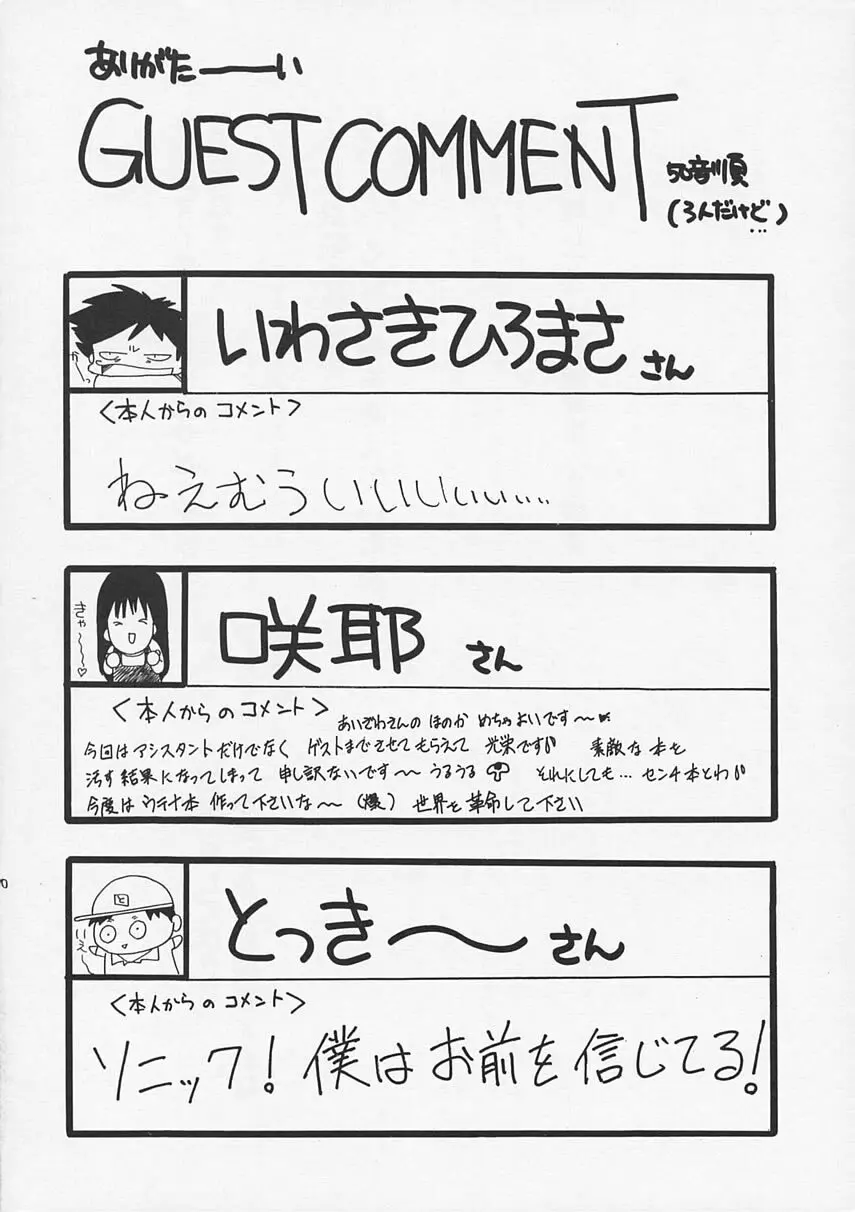 ありがたーーい
GUEST COMMENT
50音順
(ろんだけど…)
いわさきひろまさ さん
かーっ
<本人からの コメント>
ねえむういいいいぃぃ....
咲耶 さん
きゃ〜〜〜♡
<本人からの コメント>
あいざわさんの ほのか めちゃよいです〜
今回は アシスタントだけでなく ゲストまでさせて もらえて 光栄です 素敵な 本を
汚す 結果に なってしまって 申し訳ないです〜 うるうる それにしても… センチ本とわ
今度は ウテナ本 作って下さいな〜 (爆) 世界を 革命して下さい
とっき〜 さん
と
いえ
<本人からの コメント>
ソニック! 僕はお前を信じてる!